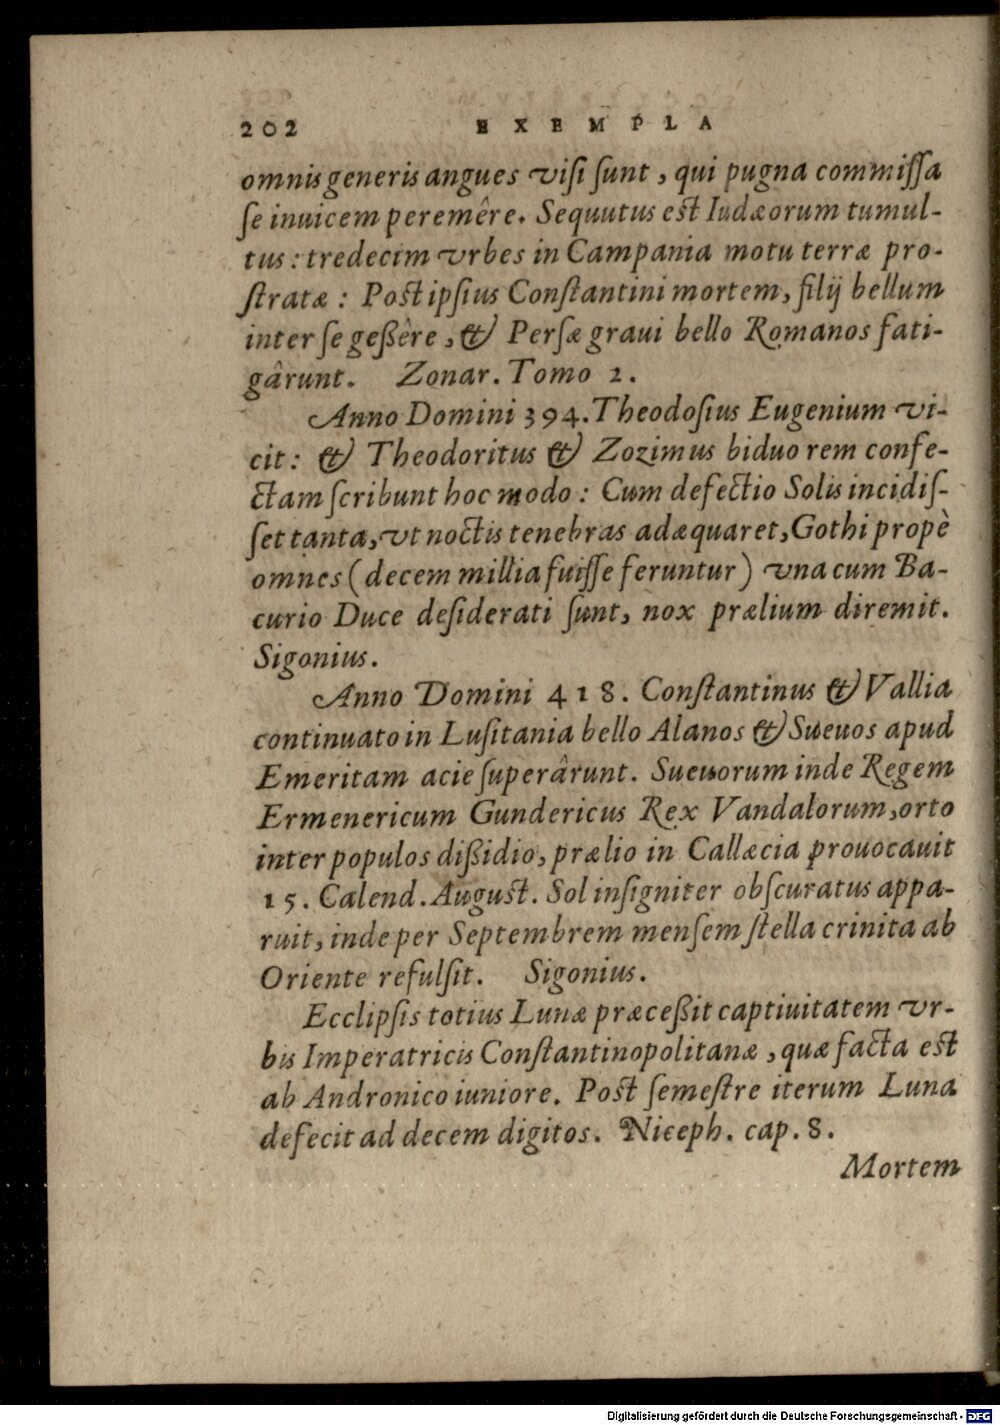 202 EXEMPLA
omnis generis angues visi sunt, qui pugna commissa
se inuicem peremêre. Sequutus est Iudæorum tumul-
tus: tredecim vrbes in Campania motu terræ pro-
stratæ: Post ipsius Constantini mortem, filij bellum
inter se geßêre, & Persæ graui bello Romanos fati-
gârunt. Zonar. Tomo 2.
Anno Domini 394. Theodosius Eugenium vi-
cit: & Theodoritus & Zozimus biduo rem confe-
ctam scribunt hoc modo: Cum defectio Solis incidis-
set tanta, vt noctis tenebras adæquaret, Gothi propè
omnes (decem millia fuisse feruntur) vna cum Ba-
curio Duce desiderati sunt, nox prælium diremit.
Sigonius.
Anno Domini 418. Constantinus & Vallia
continuato in Lusitania bello Alanos & Sueuos apud
Emeritam acie superârunt. Sueuorum inde Regem
Ermenericum Gundericus Rex Vandalorum, orto
inter populos dißidio, prælio in Callæcia prouocauit
15. Calend. August. Sol insigniter obscuratus appa-
ruit, inde per Septembrem mensem stella crinita ab
Oriente refulsit. Sigonius.
Ecclipsis totius Lunæ præceßit captiuitatem vr-
bis Imperatricis Constantinopolitanæ, quæ facta est
ab Andronico iuniore. Post semestre iterum Luna
defecit ad decem digitos. Niceph. cap. 8.
Mortem
Digitalisierung gefördert durch die Deutsche Forschungsgemeinschaft - DFG